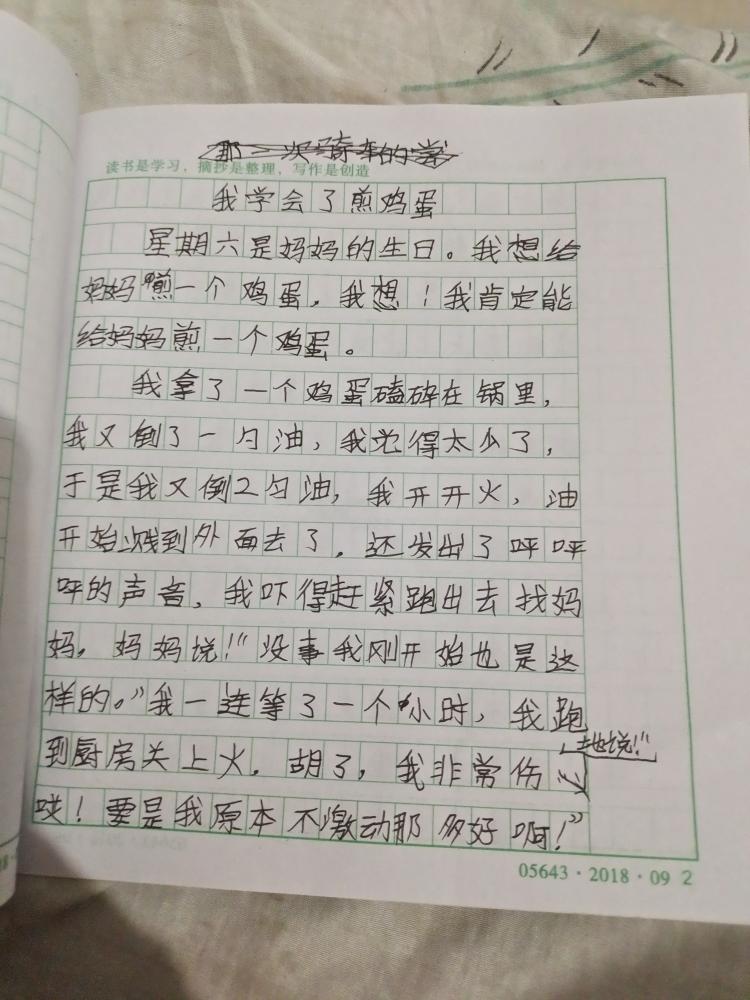 那一次骑车的尝
读书是学习，摘抄是整理，写作是创造
我学会了煎鸡蛋
星期六是妈妈的生日。我想给
妈妈煎一个鸡蛋，我想！我肯定能
给妈妈煎一个鸡蛋。
我拿了一个鸡蛋磕碎在锅里，
我又倒了一勺油，我觉得太少了，
于是我又倒2勺油，我开开火，油
开始溅到外面去了，还发出了呯呯
呯的声音，我吓得赶紧跑出去找妈
妈，妈妈说！“没事我刚开始也是这
样的。”我一连等了一个小时，我跑
到厨房关上火，胡了，我非常伤心
她说！“
哎！要是我原本不激动那多好啊！”
05643·2018·09 2